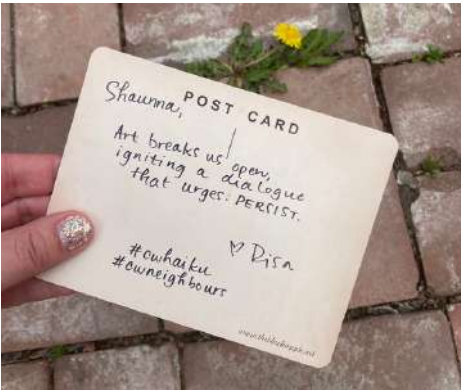 POST CARD
Shaunna,
Art breaks us open,
igniting a dialogue
that urges: PERSIST.
♡ Risa
#cwhaiku
#cwneighbours